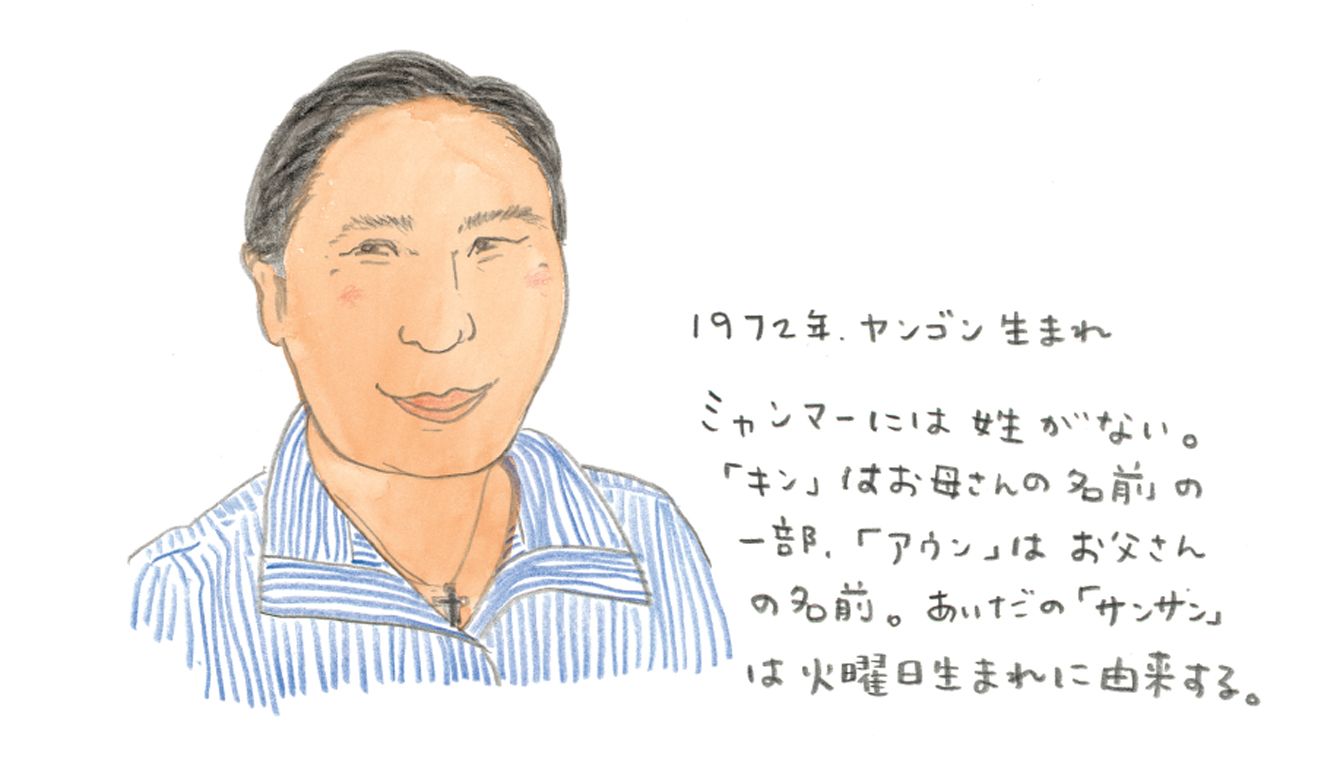 1972年、ヤンゴン生まれ
ミャンマーには姓がない。
「キン」はお母さんの名前の
一部、「アウン」はお父さん
の名前。あいだの「サンサン」
は火曜日生まれに由来する。